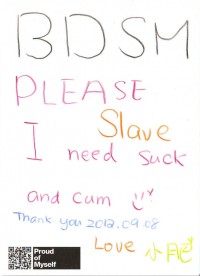 BDSM
PLEASE
Slave
I need Suck
and cum
Thank you 2012.09.08
Love 小肥
Proud
of
Myself